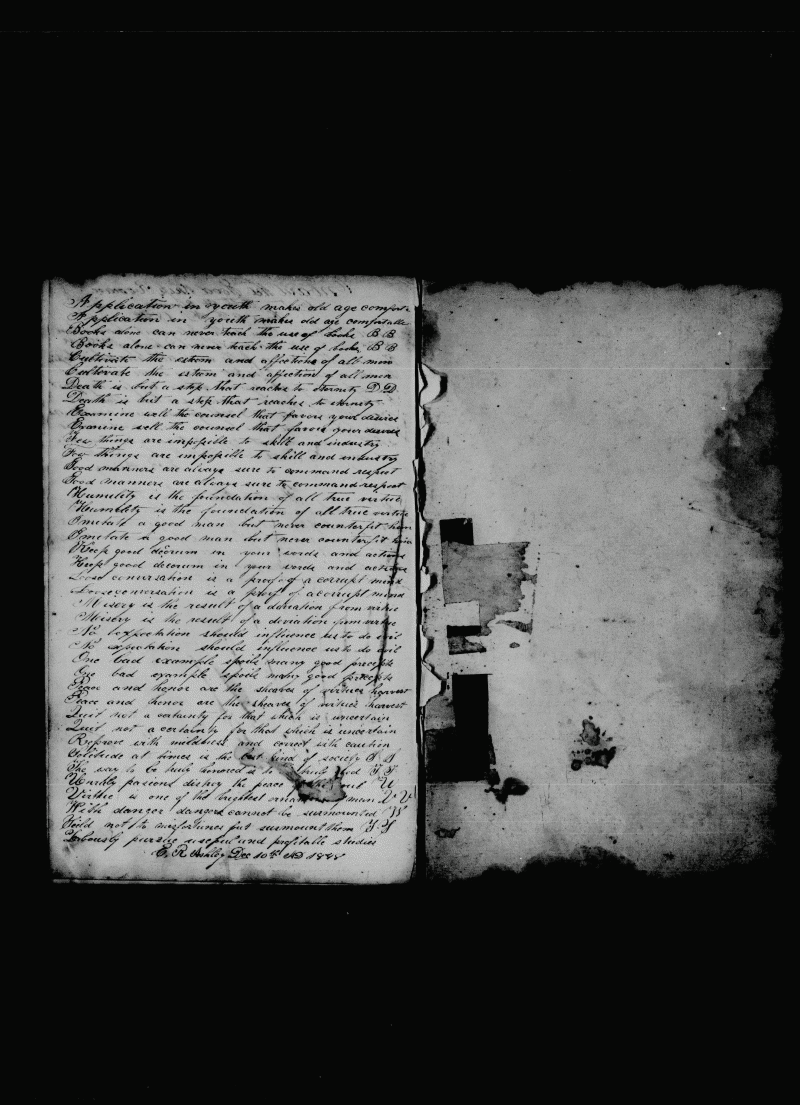 Application in youth makes old age comfort
Application in youth makes old age comfortable
Books alone can never teach the use of books B B
Books alone can never teach the use of books B B
Cultivate the esteem and affections of all men
Cultivate the esteem and affection of all men
Death is but a step that reaches to eternity D D
Death is but a step that reaches to eternity
Examine well the counsel that favors your desires
Examine well the counsel that favors your desires
Few things are impossible to skill and industry
Few things are impossible to skill and industry
Good manners are always sure to command respect
Good manners are always sure to command respect
Humility is the foundation of all true virtue
Humility is the foundation of all true virtue
Imitate a good man but never counterfit him
Imitate a good man but never counterfit him
Keep good decorum in your words and actions
Keep good decorum in your words and actions
Loose conversation is a proof of a corrupt mind
Loose conversation is a proof of a corrupt mind
Misery is the result of a deviation from virtue
Misery is the result of a deviation from virtue
No expectation should influence us to do evil
No expectation should influence us to do evil
One bad example spoils many good precepts
One bad example spoils many good precepts
Peace and honor are the sheaves of virtues harvest
Peace and honor are the sheaves of virtues harvest
Quit not a certainty for that which is uncertain
Quit not a certainty for that which is uncertain
Reprove with mildness and correct with caution
Solitude at times is the best kind of society S S
The way to be truly honored is to be T T
Unruly passions distroy the peace of the U
Virtue is one of the brightest of man V V
With danger dangers cannot be surmounted W
Yeild not to misfortunes but surmount them Y Y
Zealously pursue useful and profitable studies
E. R. Ashley Dec 10th AD 1888